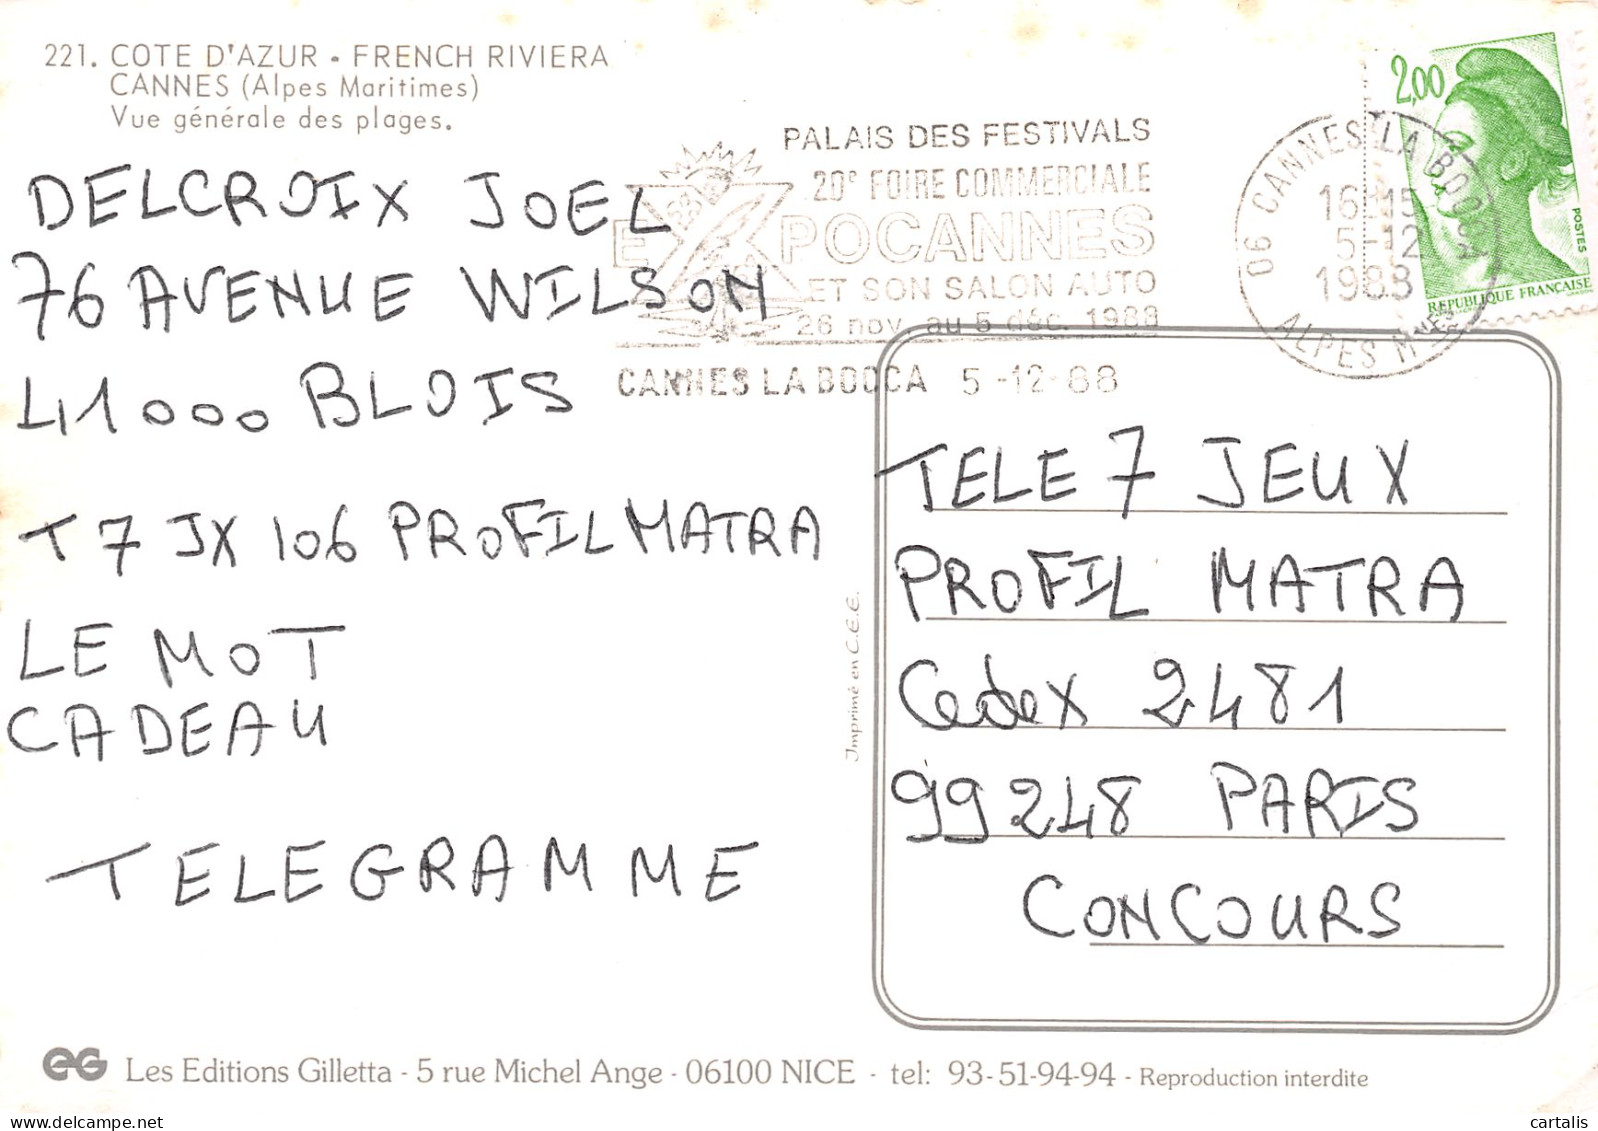 221. COTE D'AZUR - FRENCH RIVIERA
CANNES (Alpes Maritimes)
Vue générale des plages.
DELCROIX JOEL
76 AVENUE WILSON
41000 BLOIS
T7 JX 106 PROFIL MATRA
LE MOT
CADEAU
TELEGRAMME
PALAIS DES FESTIVALS
20e FOIRE COMMERCIALE
EXPOCANNES
ET SON SALON AUTO
26 nov. au 5 déc. 1988
CANNES LA BOCCA 5-12-88
06 CANNES LA BOCCA
16H15
5-12
1988
ALPES MMES
2,00
POSTES
REPUBLIQUE FRANÇAISE
TELE 7 JEUX
PROFIL MATRA
Cedex 2481
99248 PARIS
CONCOURS
Imprimé en C.E.E.
EG Les Editions Gilletta - 5 rue Michel Ange - 06100 NICE - tel: 93-51-94-94 - Reproduction interdite
cartalis